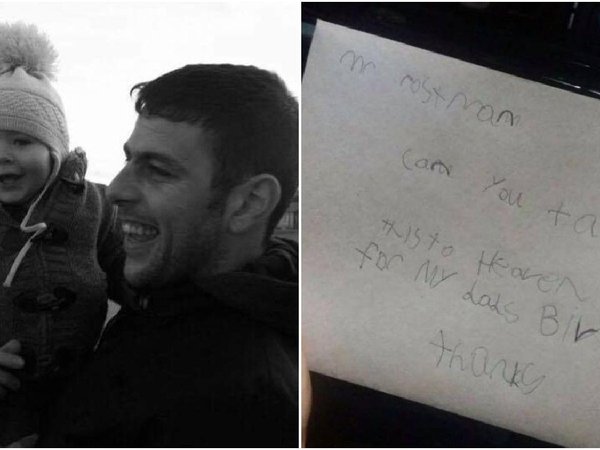 mr postman
can You ta
this to Heaven
for my dads Bir
thanks